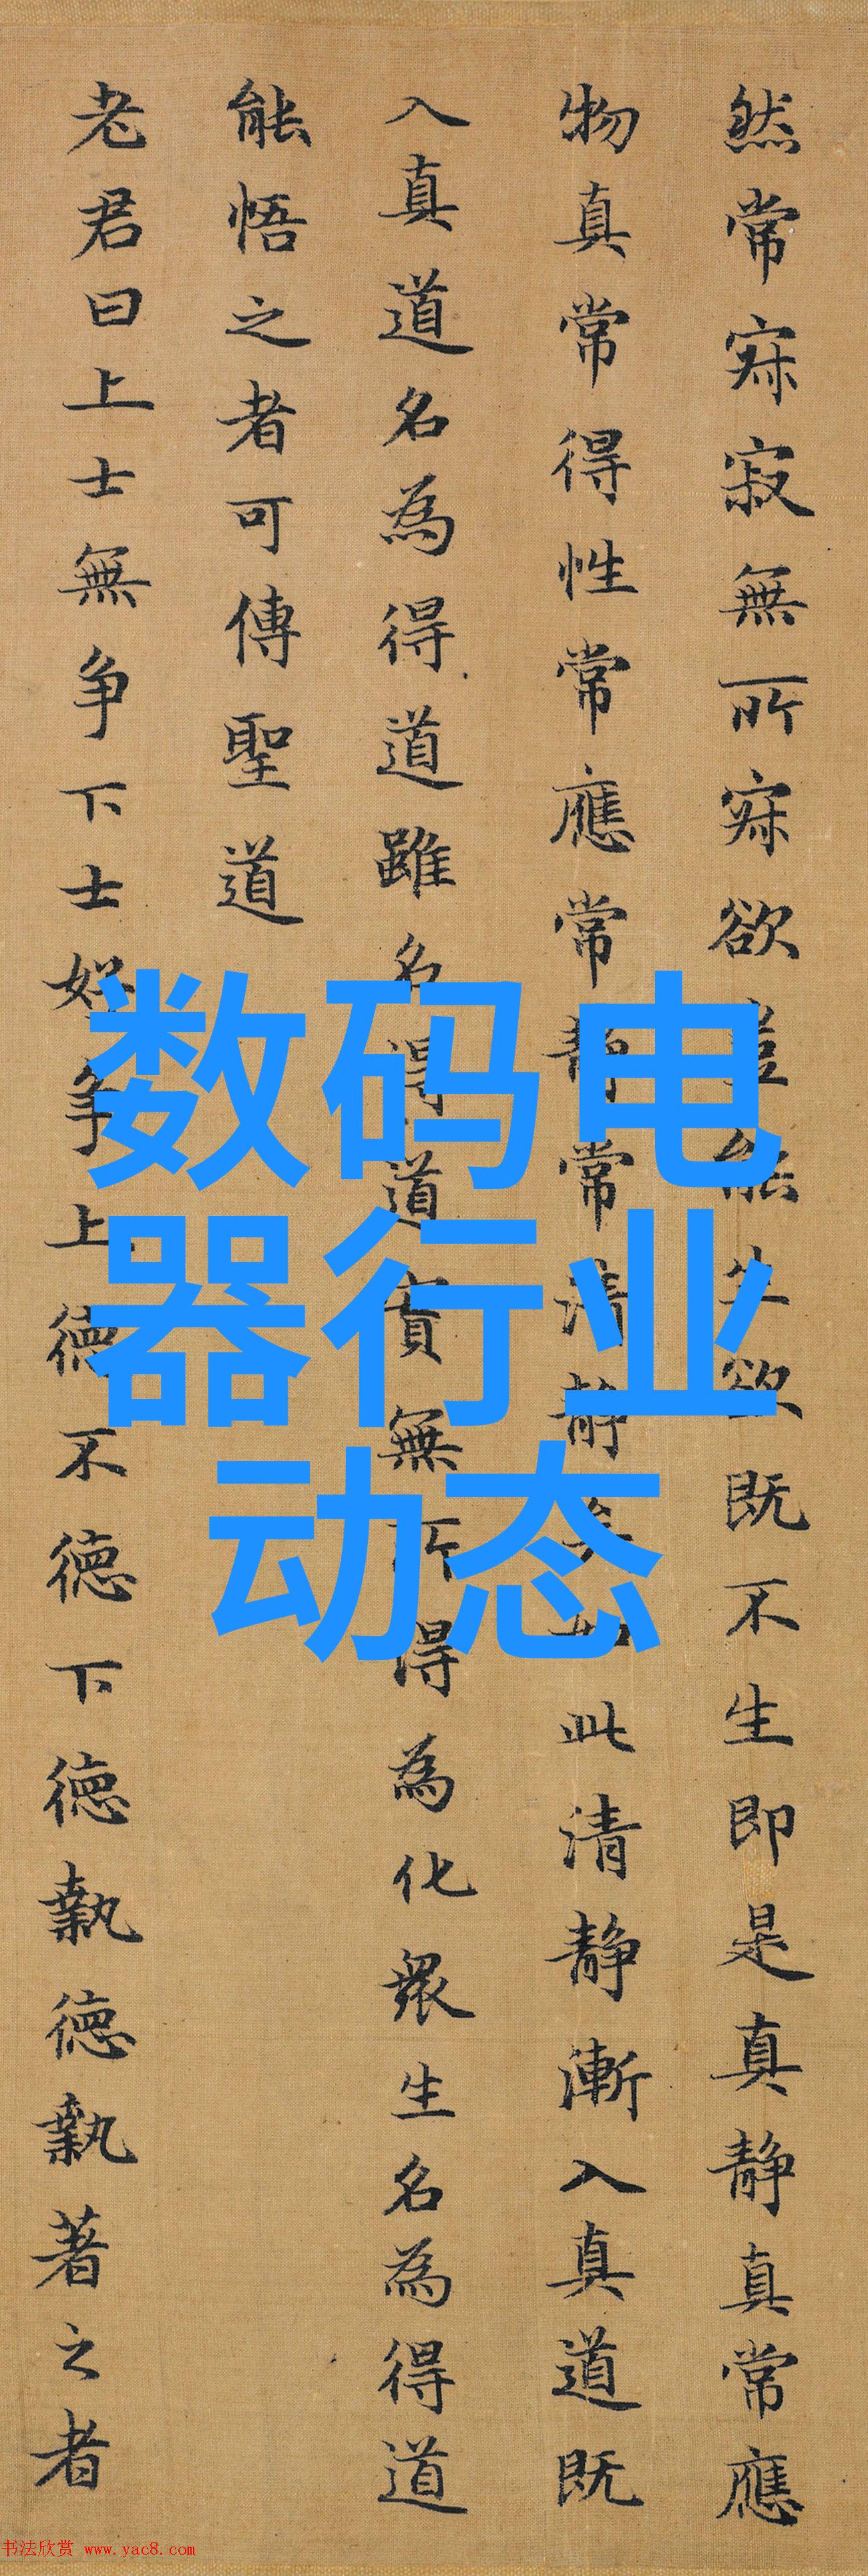 然常寂寂無所寂欲豈能生欲既不生即是真静真常應
物真常得性常應常静常清静矣如此清静漸入真道既
入真道名為得道雖名得道實無所得為化衆生名為得道
能悟之者可傳聖道
老君曰上士無争下士好争上德不德下德執德執著之者
数码电
器行业
动态
书法欣赏 www.yac8.com